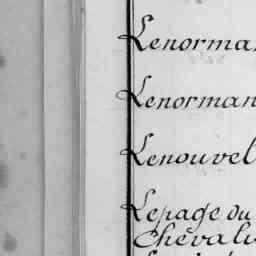 Lenorman
Lenorman
Lenouvel
Lepage du
Chevali